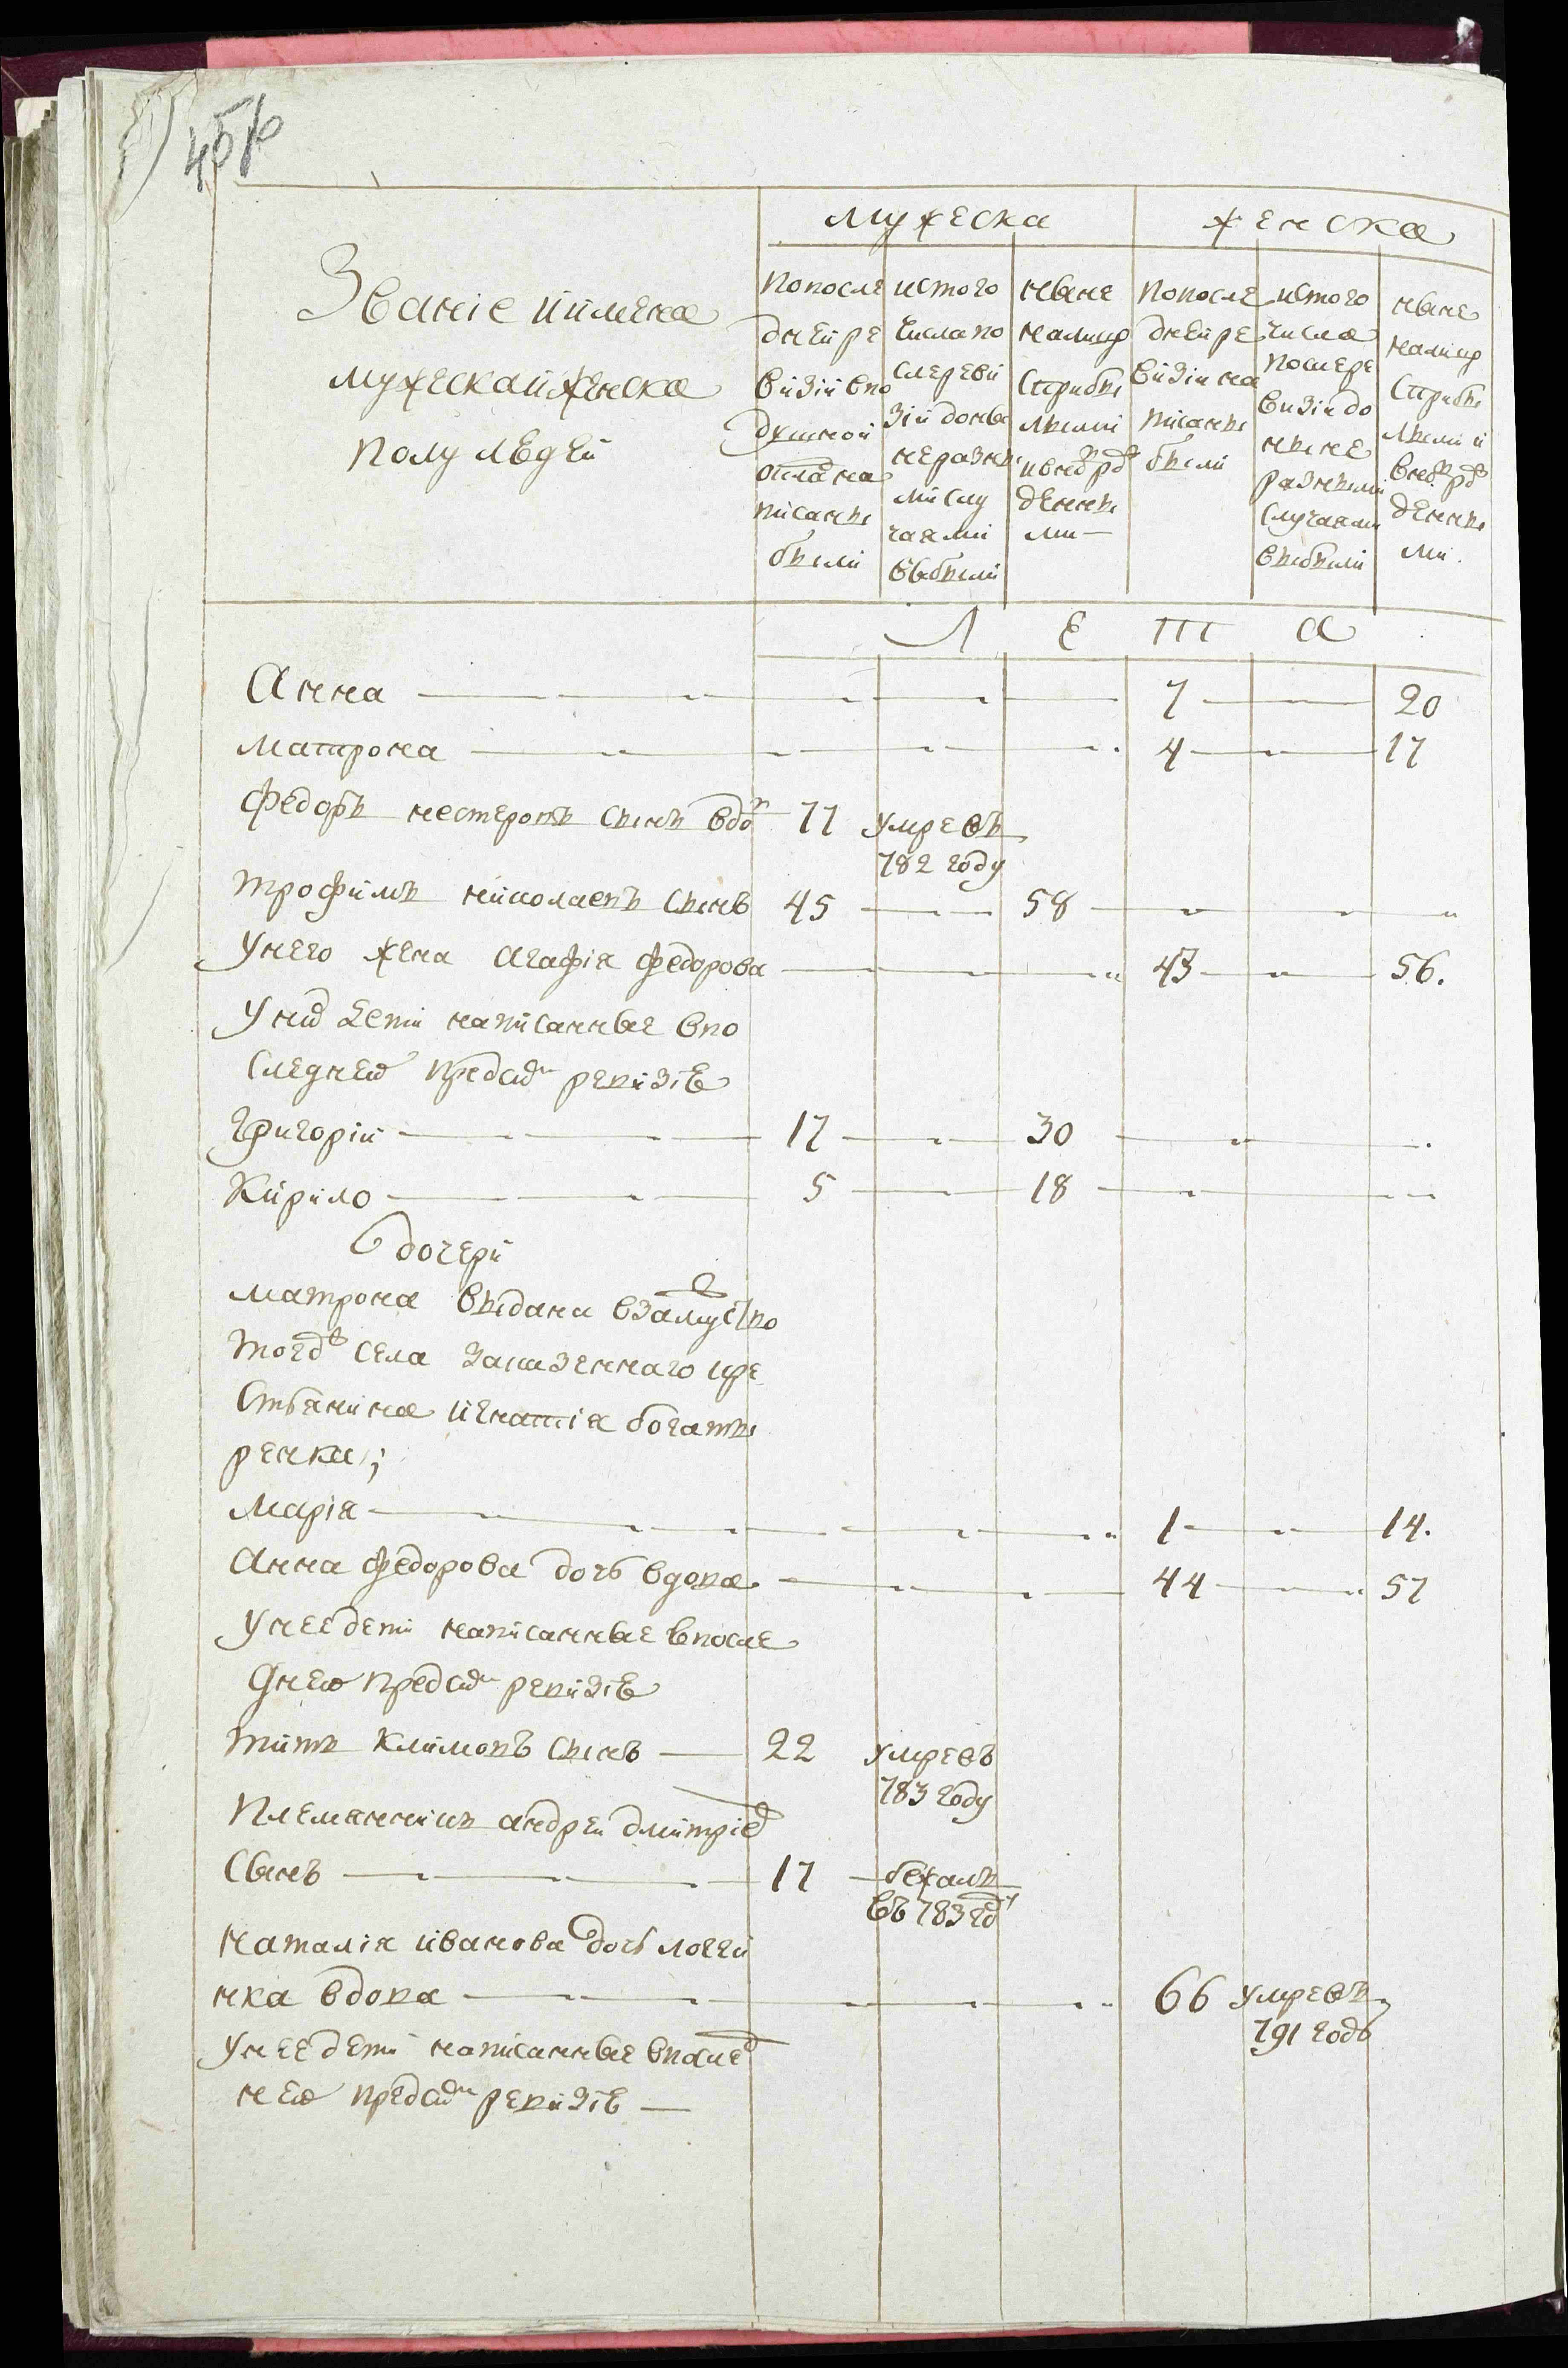 Званіе иимена
мужескаиженска
полу людей
мужеска
женска
попосле
дней ре
визіи впо
душной
окладъ на
писаны
были
истого
числа по
сле реви
зіи доны
не разны
ми слу
чаями
выбыли
ныне
на лицо
с прибы
лыми
и вновь рож
денны
ми
попосле
дней ре
визіи на
писаны
были
истого
числа
после ре
визіи до
ныне
разными
случаями
выбыли
ныне
на лицо
с прибы
лыми и
вновь рож
денны
ми.
Л Е Т А
Анна 7 20
матрона 4 17
федоръ нестеровъ сынъ вдо 77 умревъ
782 году
трофимъ николаевъ сынъ 45 58
Унего жена агафія федорова 43 56.
У них дети написанные впо
следней пред сим ревизіе
григоріи 17 30
Кирило 5 18
дочери
матрона выдана взамуство
тогож села заказеннаго кре
стьянина игнатія богаты
ренка;
марія 1 14.
Анна федорова дочь вдова 44 57
Унее дети написанные впосле
дней пред сим ревизіе
титъ климовъ сынъ 22 умревъ
783 году
племянникъ андреи дмитріев
сынъ 17 бежалъ
въ 783 год
наталія иванова дочь логви
нка вдова 66 умревъ
791 годъ
Унее дети написанные впослед
ней пред сим ревизіе